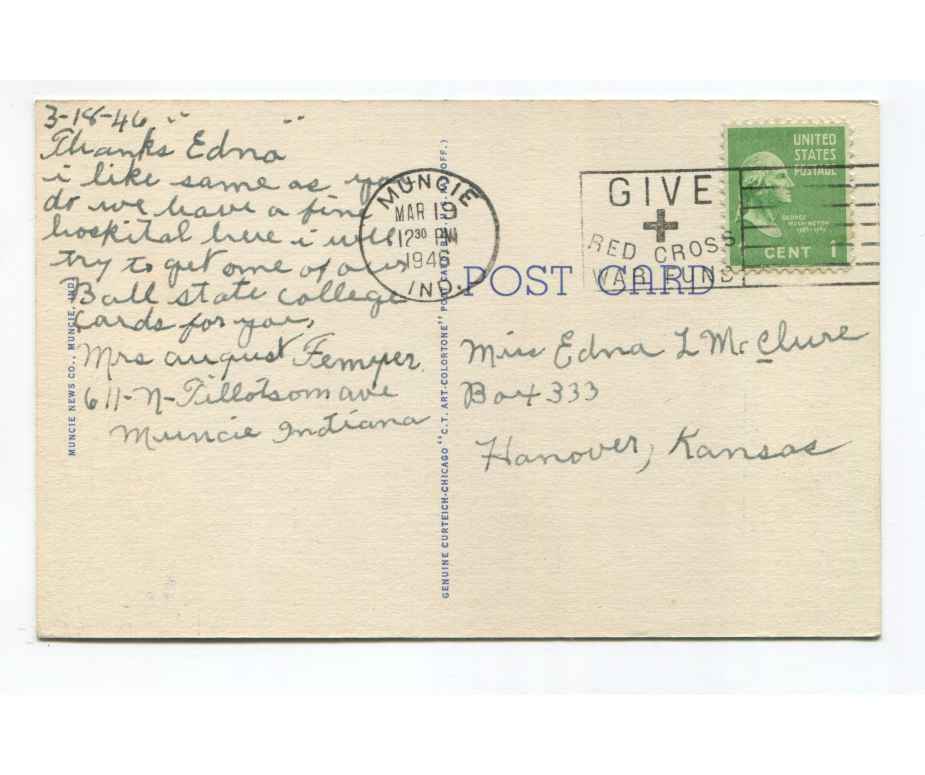 3-18-46 " "
Thanks Edna
i like same as you
do we have a fine
hospital here i will
try to get one of our
Ball state college
cards for you,
Mrs august Femyer.
611-N-Tillotson ave
Muncie Indiana
MUNCIE NEWS CO., MUNCIE, IND.
GENUINE CURTEICH-CHICAGO "C.T. ART-COLORTONE" POST CARD (REG. U.S. PAT. OFF.)
MUNCIE
MAR 19
12 30 PM
1946
IND.
GIVE
RED CROSS
WAR FUND
UNITED
STATES
POSTAGE
GEORGE
WASHINGTON
CENT 1
POST CARD
Miss Edna L McClure
Box 333
Hanover, Kansas